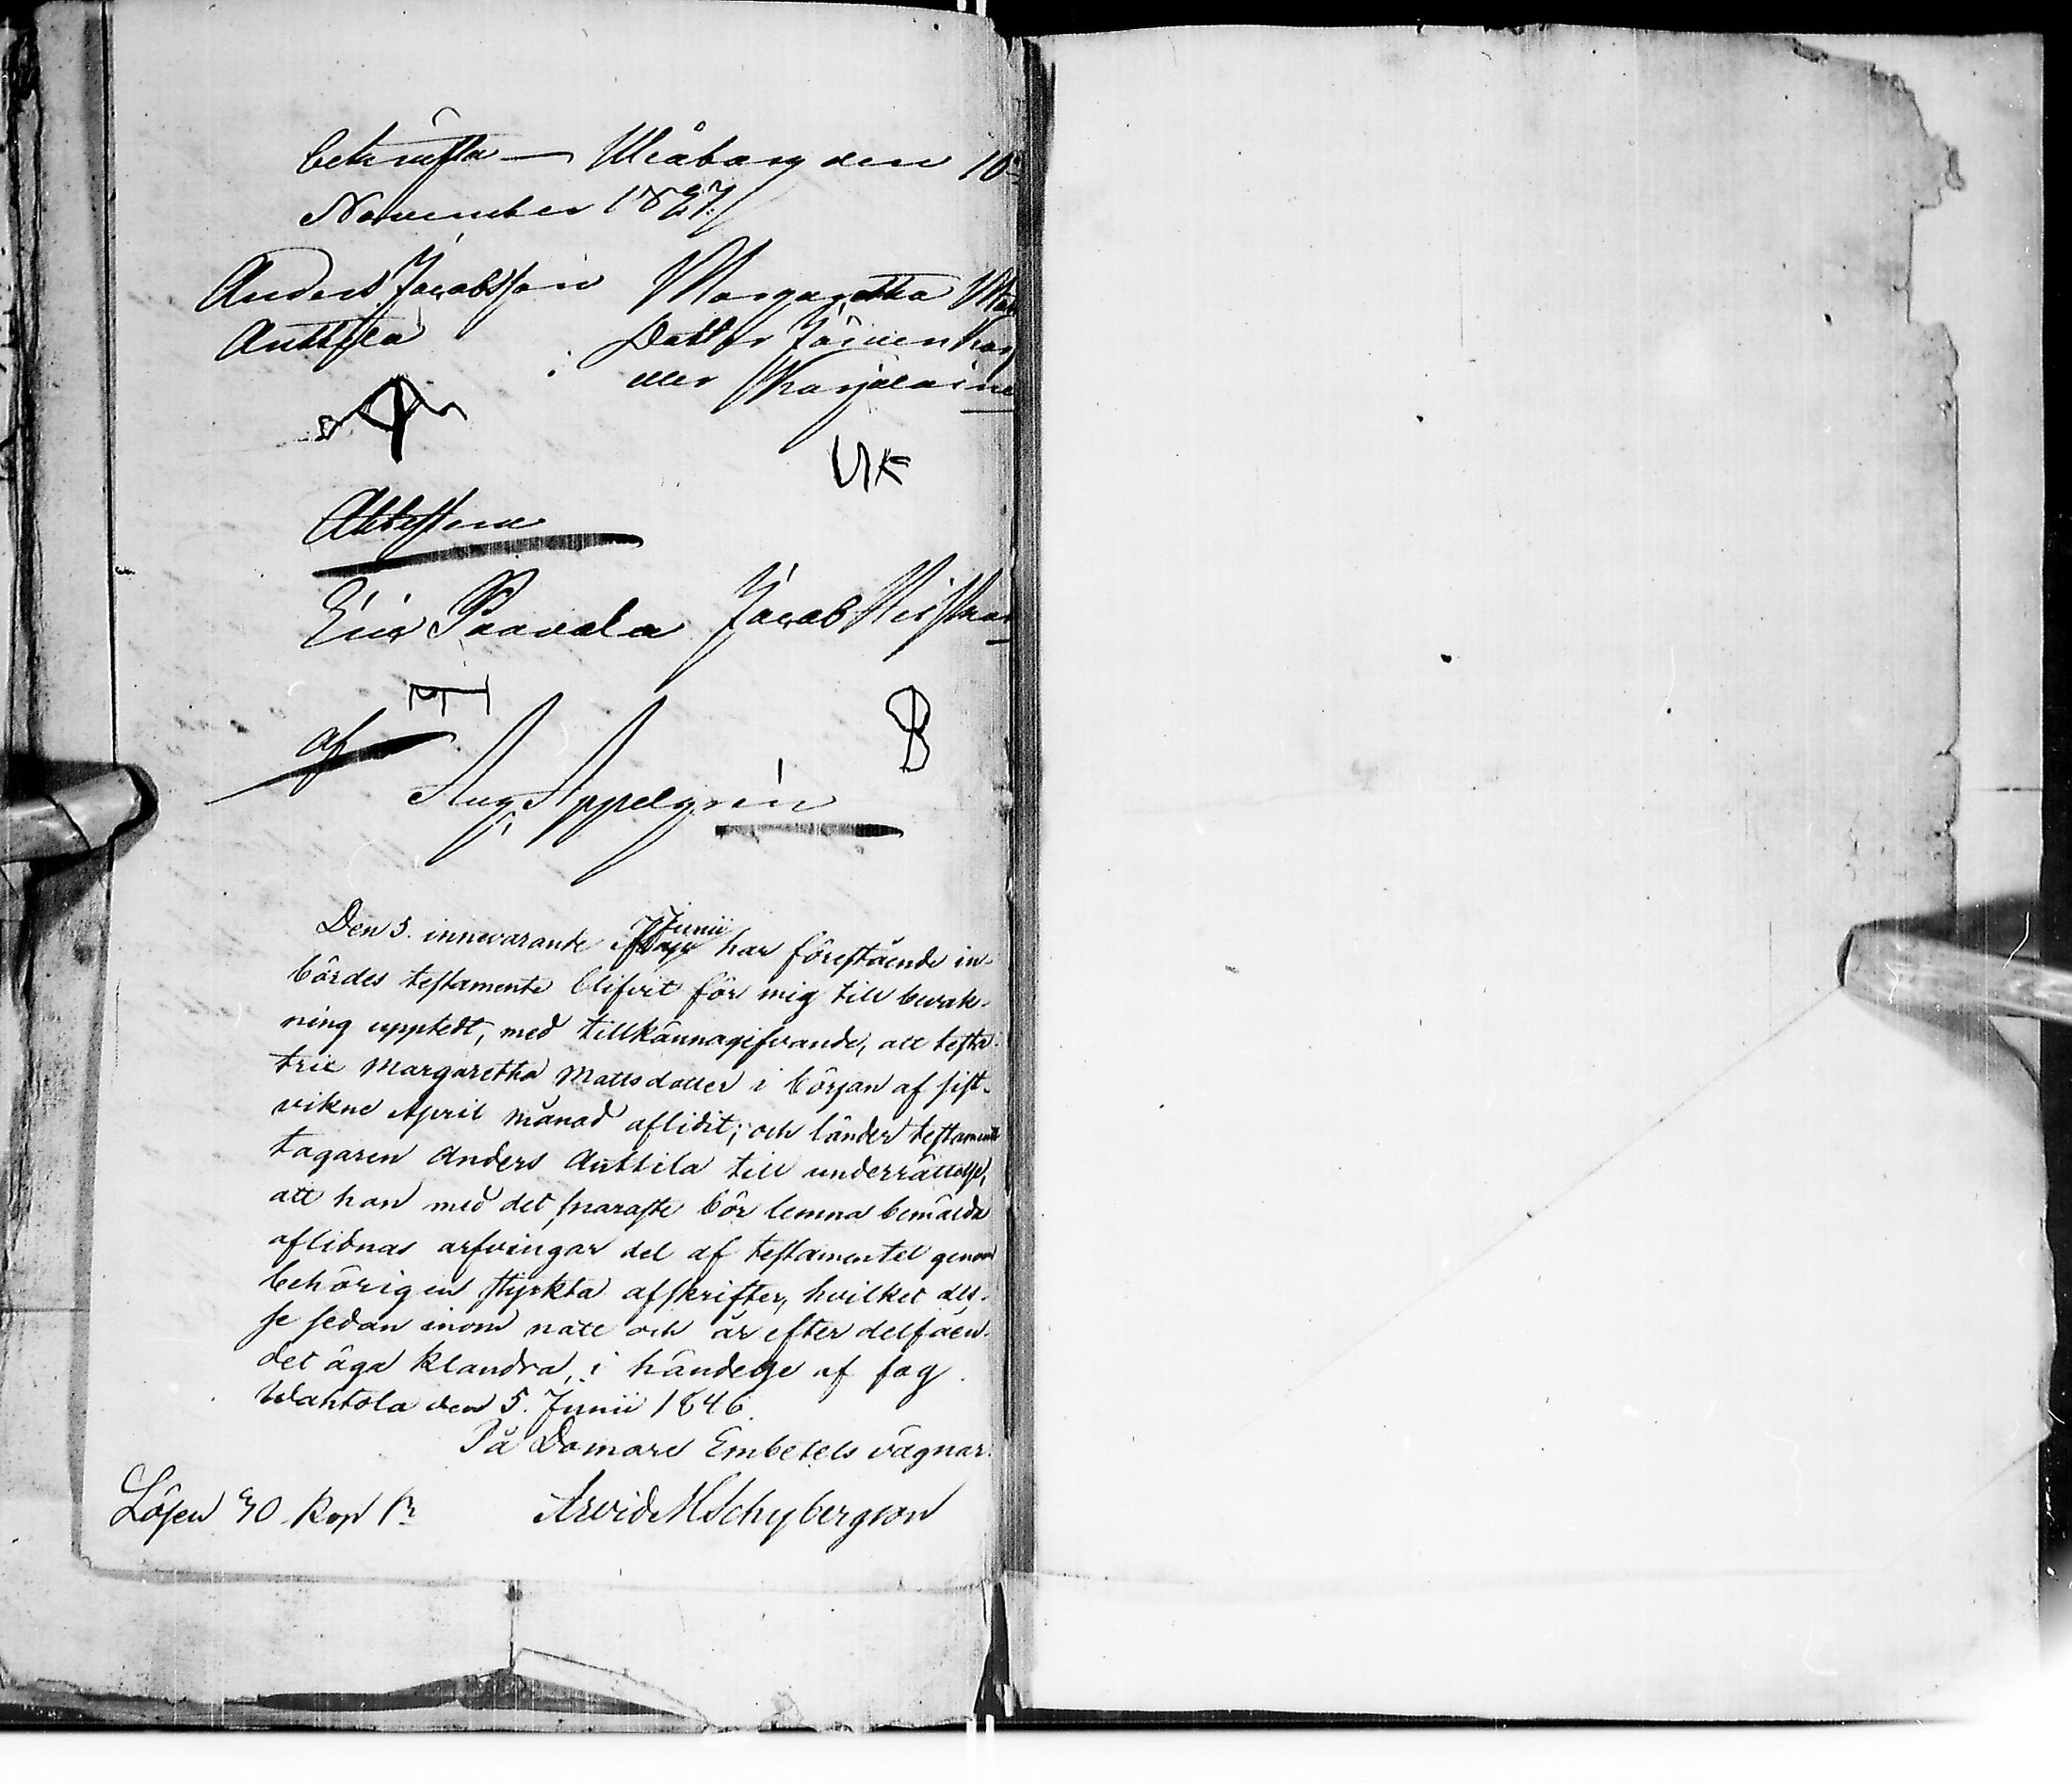 bekräfta — Uleåborg den 10
November 1827./
Anders Jacobsson Margaretha
Anttila Dotter
eller Karjalaine
Attestera
Eric Paavola Jacob
af
Aug. Appelgrén
Den 5. innevarande Junii har förestående in-
bördes testamente blifvit för mig till bevak-
ning upptedt, med tillkännagifvande, att testa-
trix Margaretha Mattsdotter i början af sist-
vikne April månad aflidit; och länder testaments
tagaren Anders Anttila till underrättelse,
att han med det snaraste bör lemna bemälda
aflidnas arfvingar del af testamentet genom
behörigen styrkta afskrifter, hvilket des-
se sedan inom natt och år efter delfåen-
det äga klandra, i händelse af fog.
Wahtola den 5. Junii 1846.
På Domare Embetets vägnar:
Lösen 30 Kop Sr Arvid H Schybergson